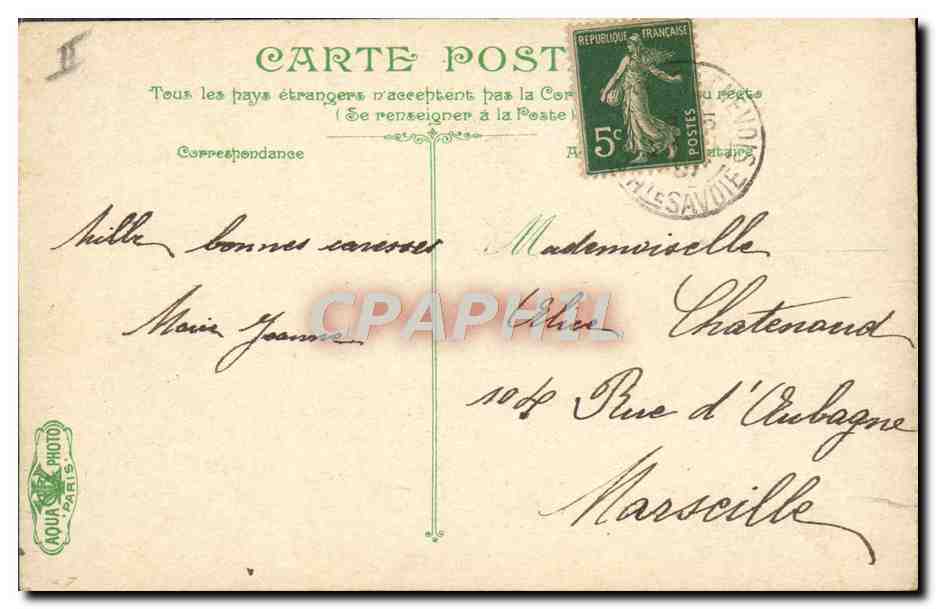 II
CARTE POST
Tous les pays étrangers n'acceptent pas la Cor
(Se renseigner à la Poste)
Correspondance
RÉPUBLIQUE FRANÇAISE
5c
POSTES
Hte SAVOIE
Mille bonnes caresses
Marie Jeanne
Mademoiselle
Alice Chatenoud
104 Rue d'Aubagne
Marseille
CPAPHIL
AQUA PHOTO
PARIS